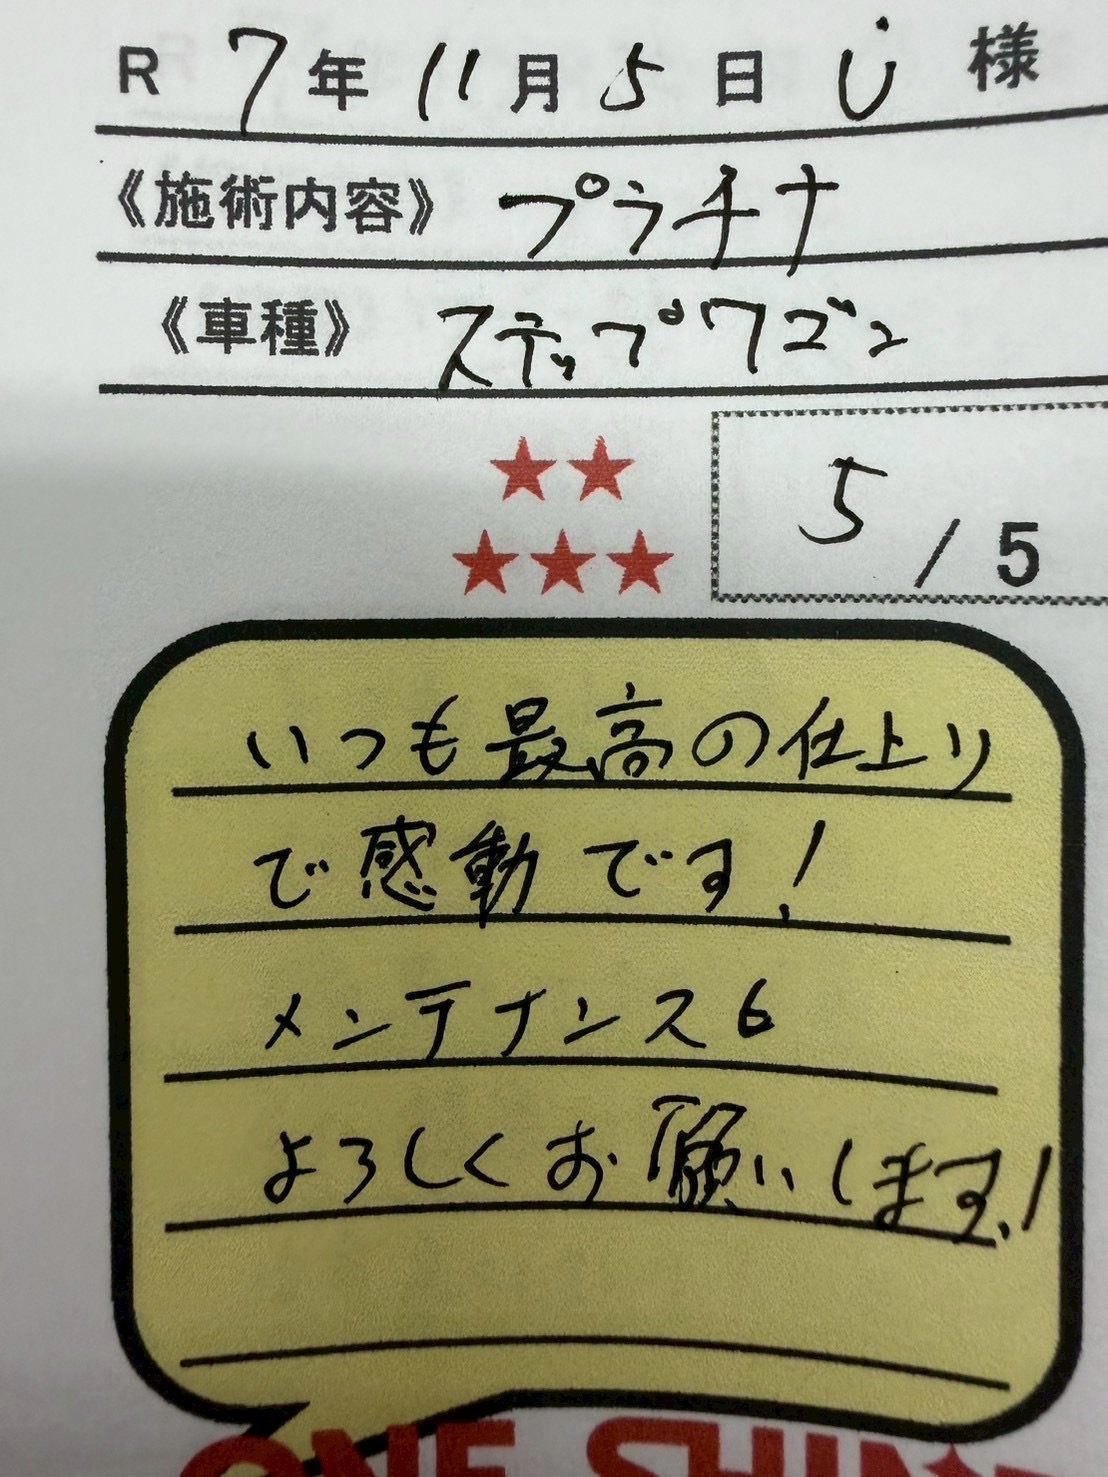 R 7年 11月 5日 U 様
《施術内容》 プラチナ
《車種》 ステップワゴン
★★
★★★
5 / 5
いつも最高の仕上り
で感動です!
メンテナンスも
よろしくお願いします!
ONE SHIN